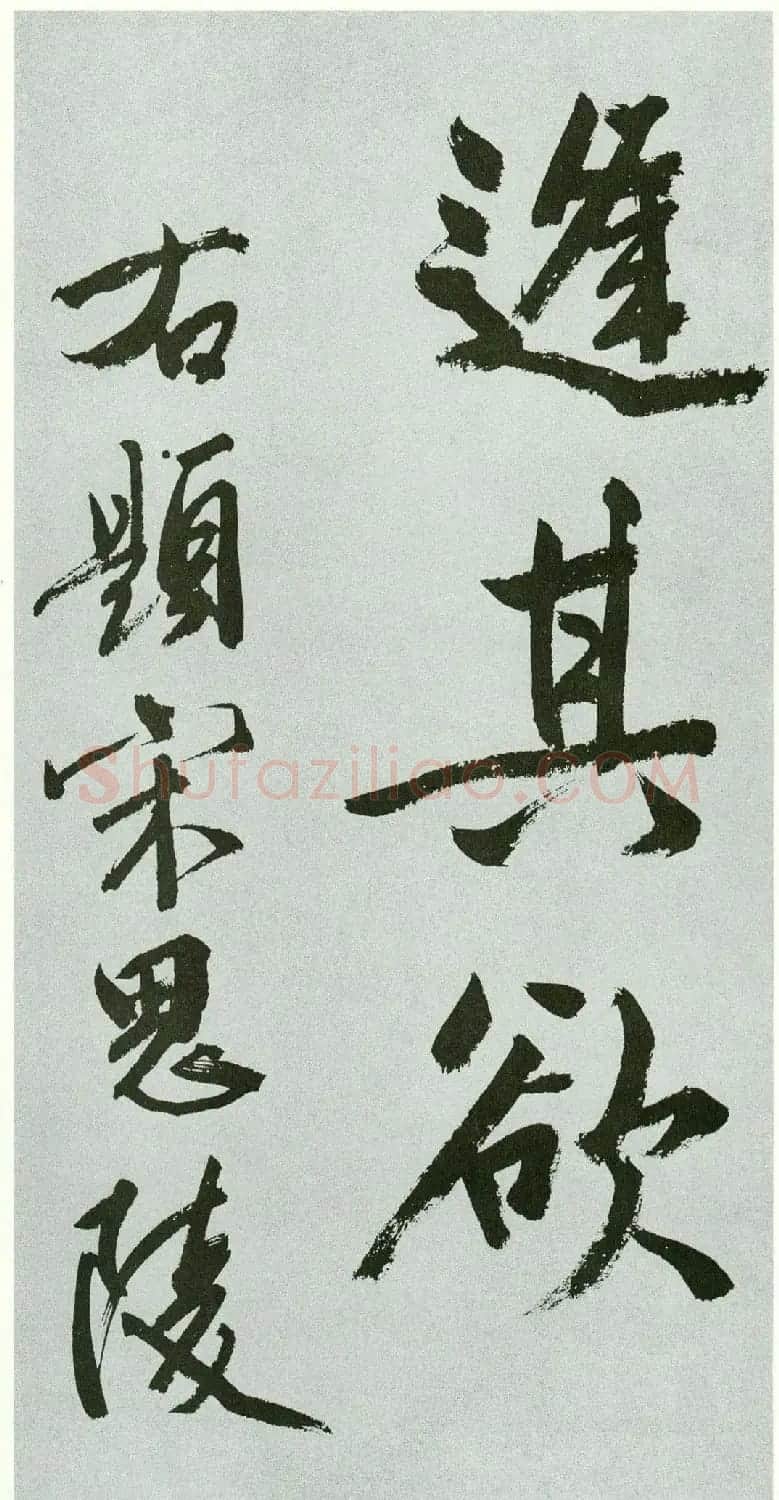 逢其欲
右題宋思陵
Shufaziliao.COM